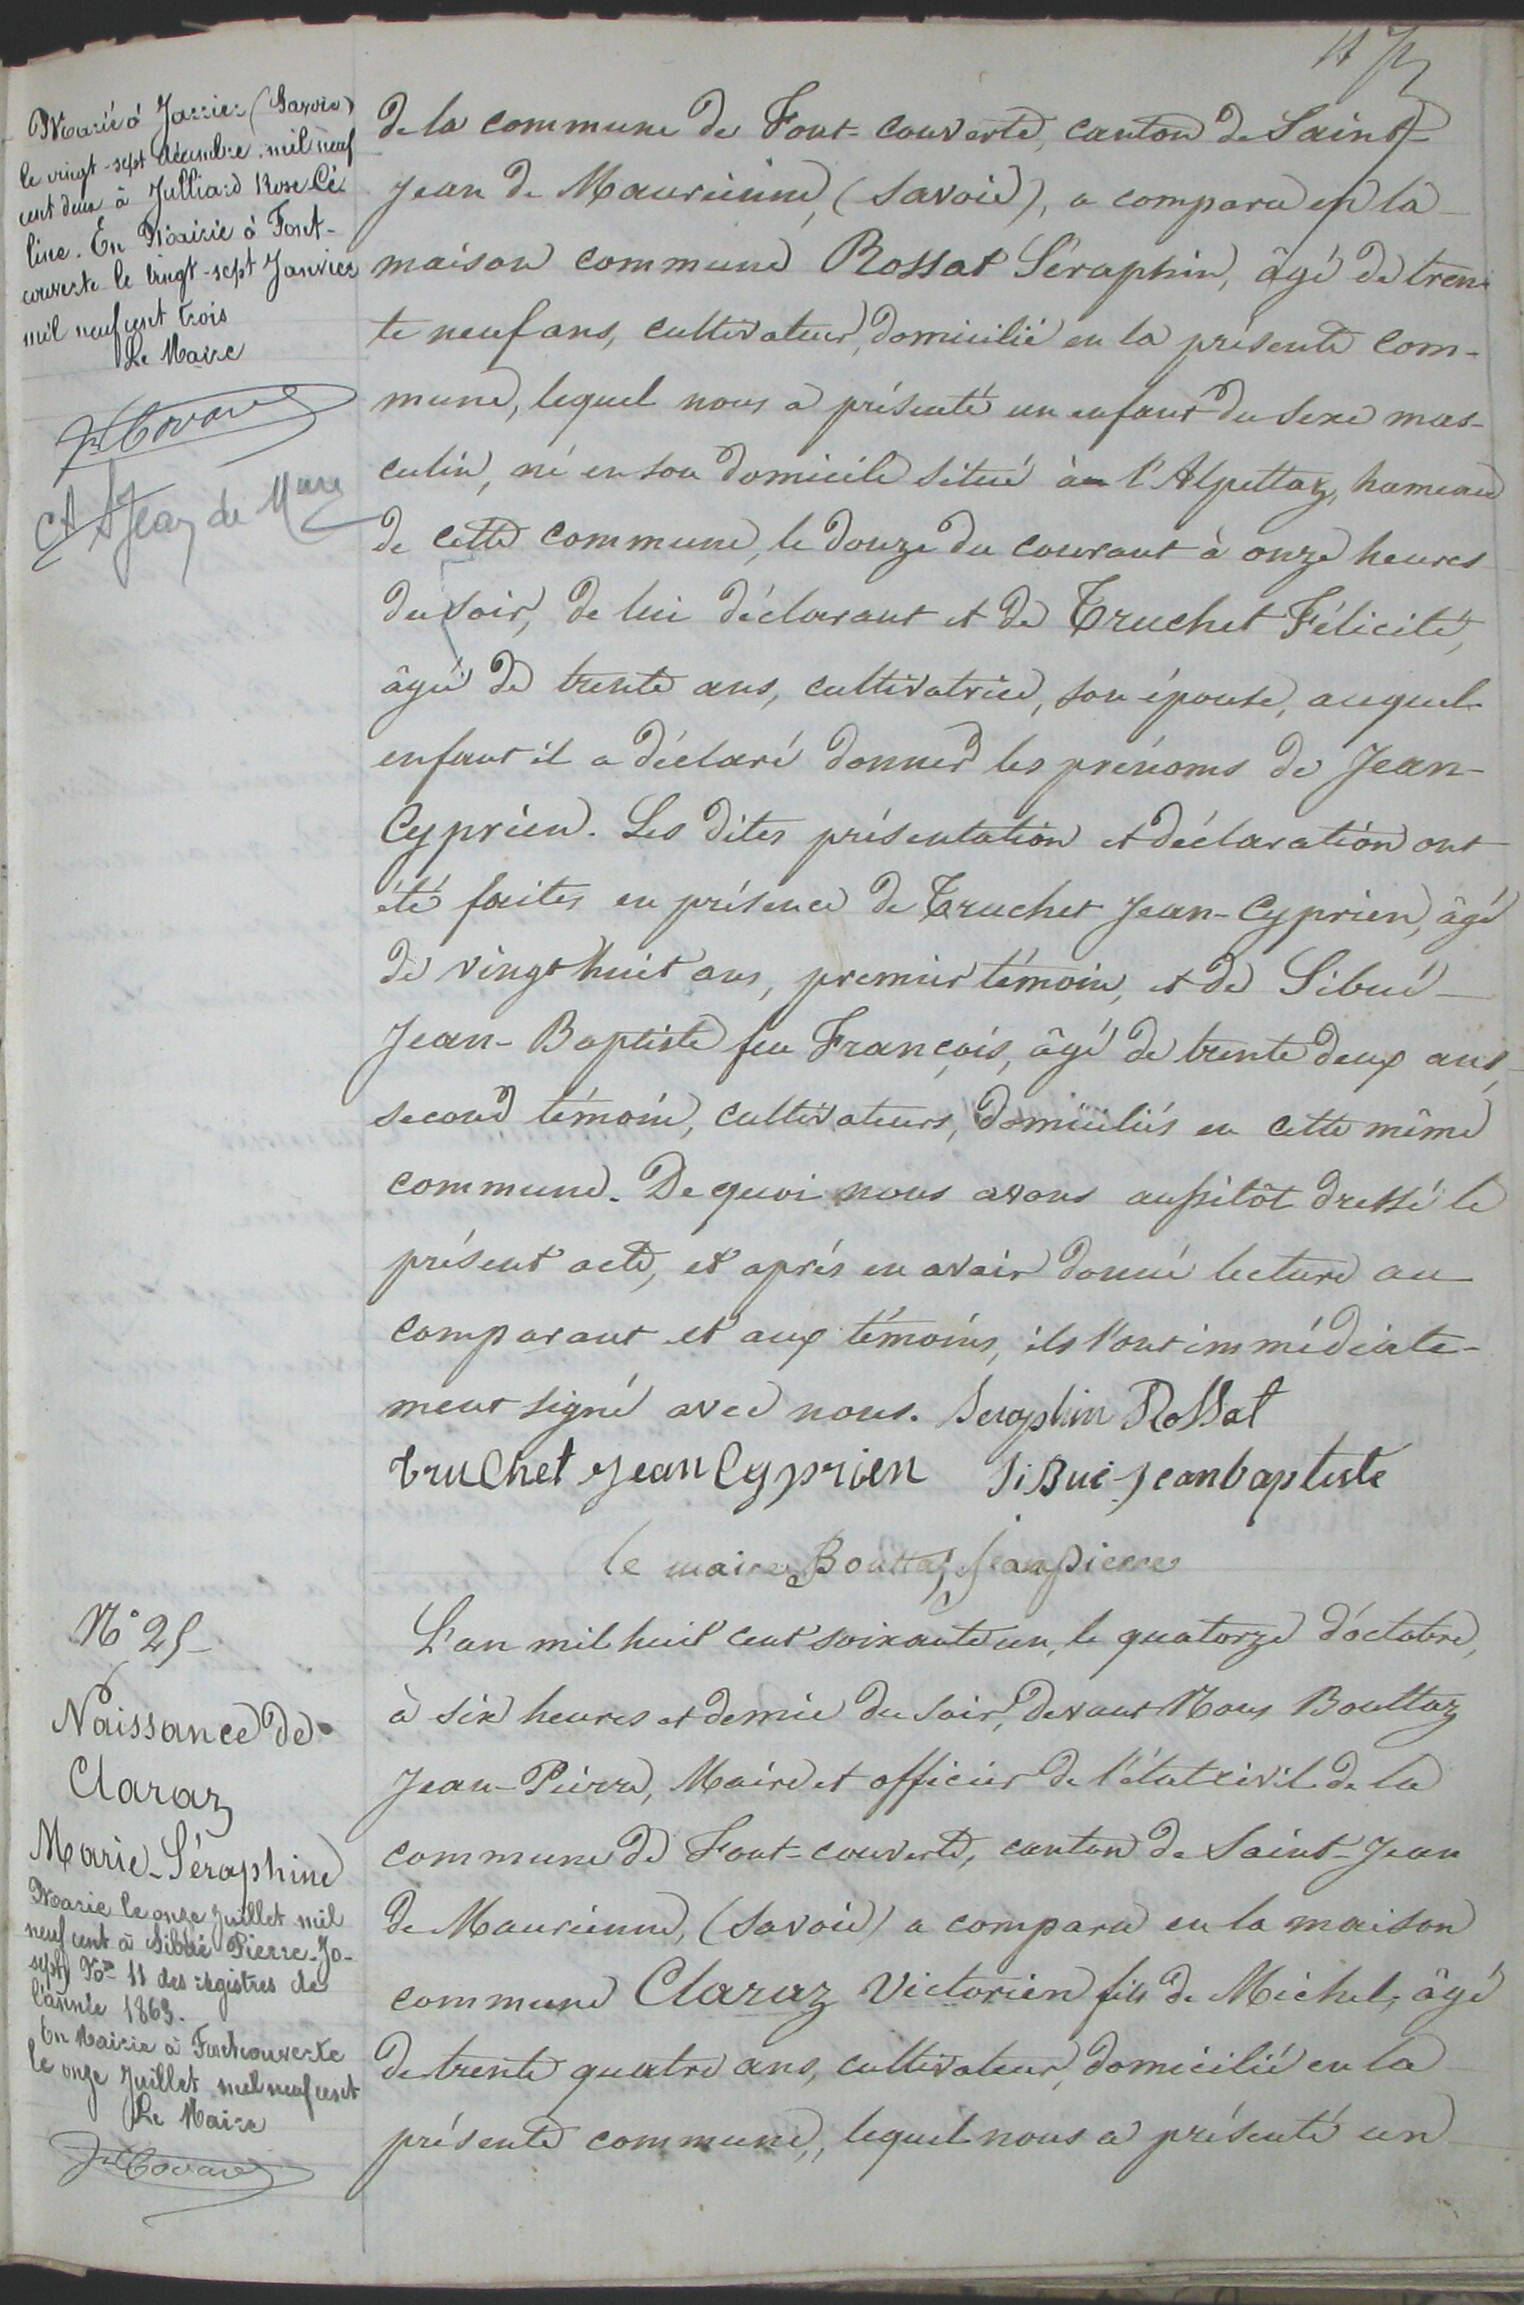 Marié à Jarrier (Savoie)
le vingt-sept décembre mil neuf
cent deux à Julliard Rose Cé-
line. En Mairie à Font-
couverte le vingt-sept Janvier
mil neuf cent trois
Le Maire
St Jean de Mau
de la commune de Font-couverte, canton de Saint-
Jean de Maurienne, (Savoie), a comparu en la
maison commune Rossat Séraphin, âgé de tren-
te neuf ans, cultivateur, domicilié en la présente com-
mune, lequel nous a présenté un enfant du sexe mas-
culin, né en son domicile situé à l'Alpettaz, hameau
de cette commune, le douze du courant à onze heures
du soir, de lui déclarant et de Truchet Félicité,
âgée de trente ans, cultivatrice, son épouse, auquel
enfant il a déclaré donner les prénoms de Jean-
Cyprien. Les dites présentation et déclaration ont
été faites en présence de Truchet Jean-Cyprien, âgé
de vingt huit ans, premier témoin, et de Sibué
Jean-Baptiste feu François, âgé de trente deux ans,
second témoin, cultivateurs, domiciliés en cette même
commune. De quoi nous avons aussitôt dressé le
présent acte, et après en avoir donné lecture au
comparant et aux témoins, ils l'ont immédiate-
ment signé avec nous. Seraphin Rossat
truchet jean Cyprien SiBué jean baptiste
le maire Bouttaz Jean pierre
N° 25
Naissance de
Claraz
Marie-Séraphine
Marie le onze Juillet mil
neuf cent à Sibué Pierre Jo-
seph No 11 des registres de
l'année 1863.
En Mairie à Fontcouverte
le onze Juillet mil neuf cent
Le Maire
L'an mil huit cent soixante un, le quatorze d'octobre,
à six heures et demie du soir, devant Nous Bouttaz
Jean-Pierre, Maire et officier de l'état civil de la
commune de Font-couverte, canton de Saint-Jean
de Maurienne, (Savoie) a comparu en la maison
commune Claraz Victorien fils de Michel, âgé
de trente quatre ans, cultivateur, domicilié en la
présente commune, lequel nous a présenté un